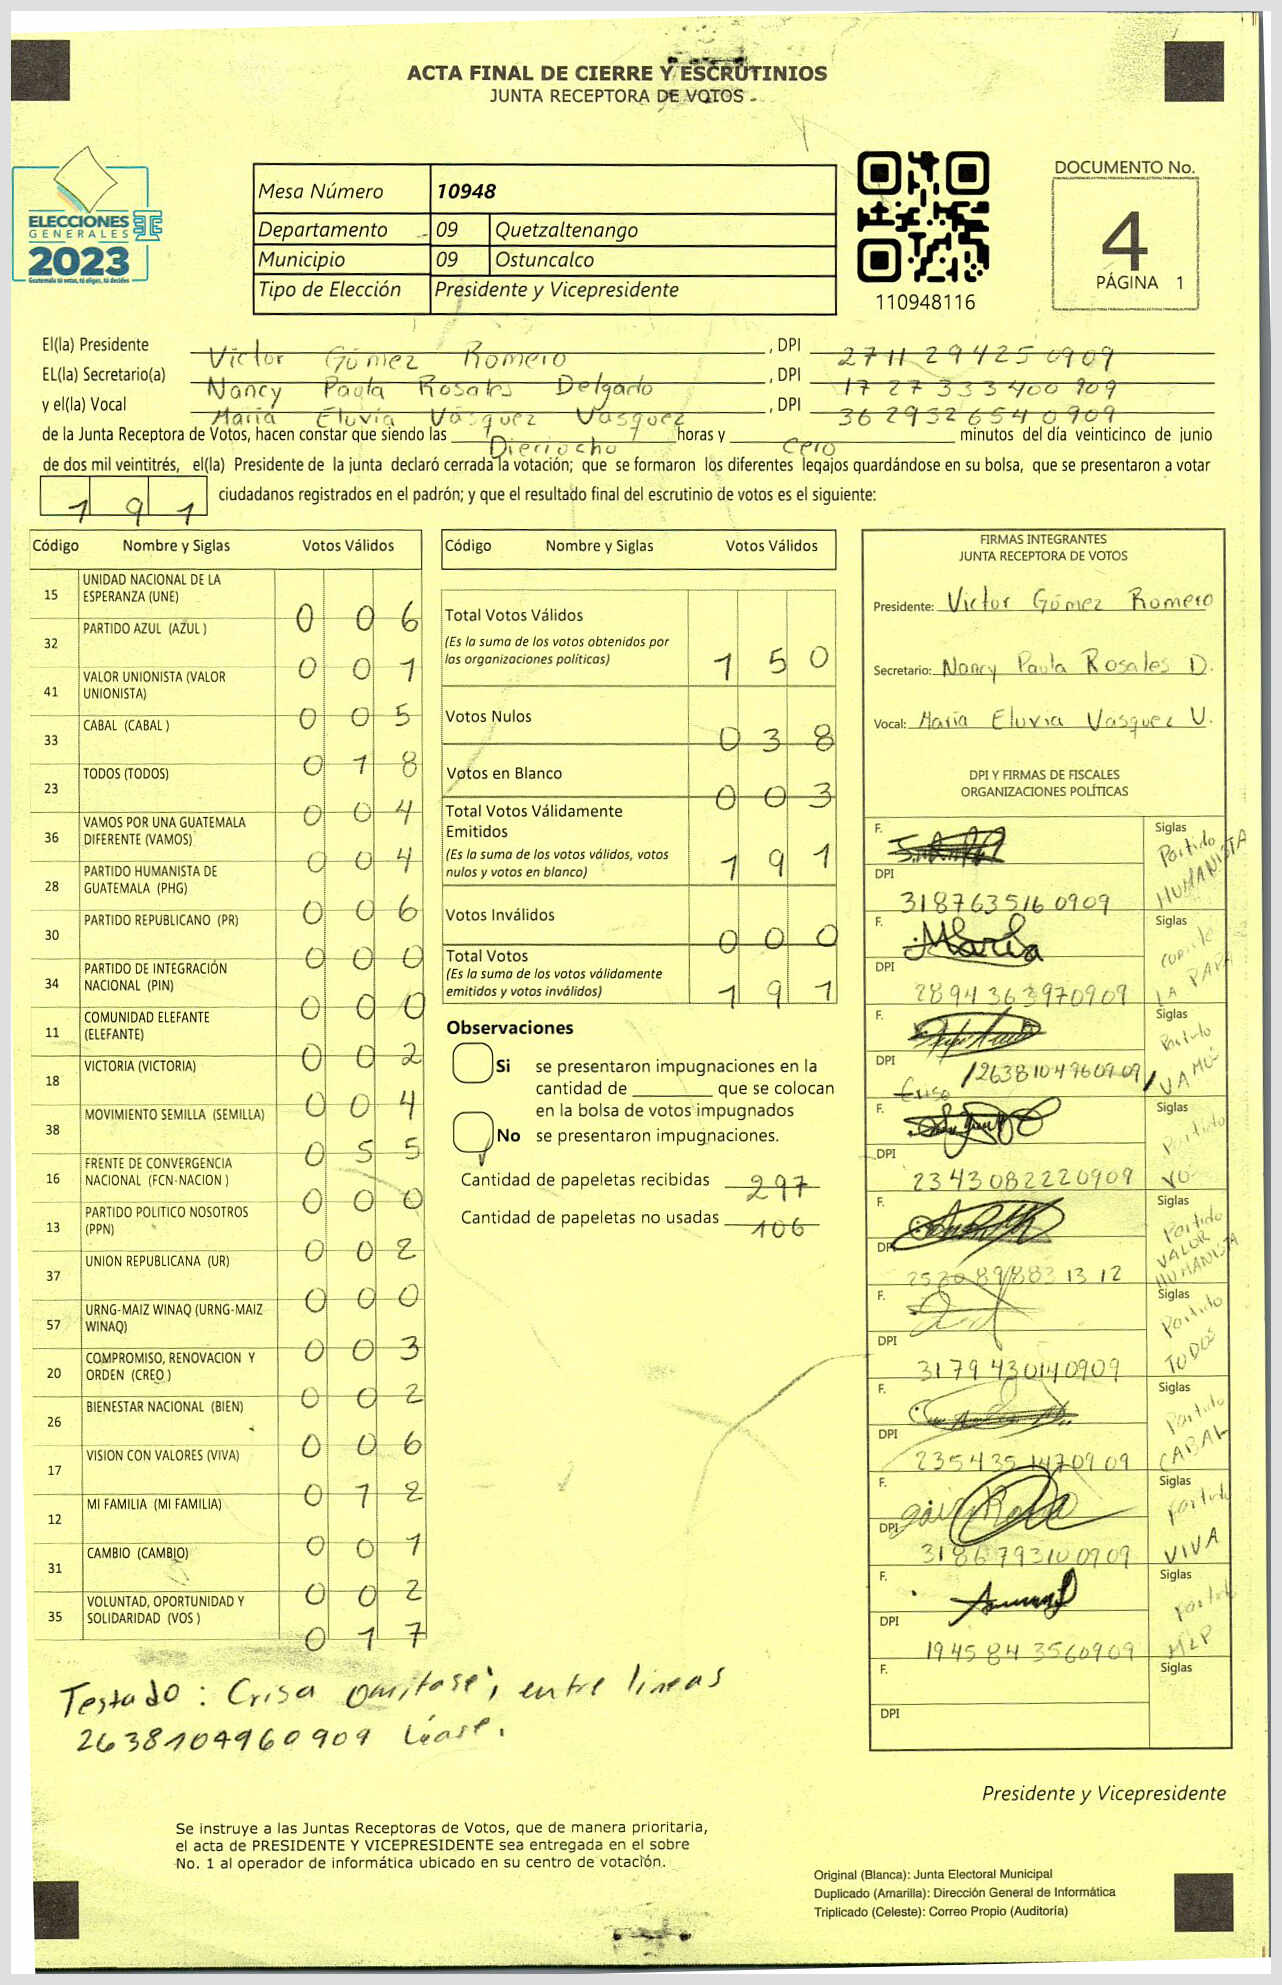 ACTA FINAL DE CIERRE Y ESCRUTINIOS
JUNTA RECEPTORA DE VOTOS
ELECCIONES
GENERALES
2023
Guatemala tú votas, tú eliges, tú decides
Mesa Número 10948
Departamento 09 Quetzaltenango
Municipio 09 Ostuncalco
Tipo de Elección Presidente y Vicepresidente
110948116
DOCUMENTO No.
4
PÁGINA 1
El(la) Presidente Victor Gómez Romero, DPI 2711 29425 0909
EL(la) Secretario(a) Nancy Paola Rosales Delgado, DPI 1727333400 909
y el(la) Vocal María Eluvia Vásquez Vasquez, DPI 3629526540909
de la Junta Receptora de Votos, hacen constar que siendo las Dieciocho horas y Cero minutos del día veinticinco de junio
de dos mil veintitrés, el(la) Presidente de la junta declaró cerrada la votación; que se formaron los diferentes legajos guardándose en su bolsa, que se presentaron a votar
191 ciudadanos registrados en el padrón; y que el resultado final del escrutinio de votos es el siguiente:
Código Nombre y Siglas Votos Válidos
15 UNIDAD NACIONAL DE LA ESPERANZA (UNE) 0 0 6
32 PARTIDO AZUL (AZUL ) 0 0 1
41 VALOR UNIONISTA (VALOR UNIONISTA) 0 0 5
33 CABAL (CABAL ) 0 1 8
23 TODOS (TODOS) 0 0 4
36 VAMOS POR UNA GUATEMALA DIFERENTE (VAMOS) 0 0 4
28 PARTIDO HUMANISTA DE GUATEMALA (PHG) 0 0 6
30 PARTIDO REPUBLICANO (PR) 0 0 0
34 PARTIDO DE INTEGRACIÓN NACIONAL (PIN) 0 0 0
11 COMUNIDAD ELEFANTE (ELEFANTE) 0 0 2
18 VICTORIA (VICTORIA) 0 0 4
38 MOVIMIENTO SEMILLA (SEMILLA) 0 5 5
16 FRENTE DE CONVERGENCIA NACIONAL (FCN-NACION ) 0 0 0
13 PARTIDO POLITICO NOSOTROS (PPN) 0 0 2
37 UNION REPUBLICANA (UR) 0 0 0
57 URNG-MAIZ WINAQ (URNG-MAIZ WINAQ) 0 0 3
20 COMPROMISO, RENOVACION Y ORDEN (CREO ) 0 0 2
26 BIENESTAR NACIONAL (BIEN) 0 0 6
17 VISION CON VALORES (VIVA) 0 1 2
12 MI FAMILIA (MI FAMILIA) 0 0 1
31 CAMBIO (CAMBIO) 0 0 2
35 VOLUNTAD, OPORTUNIDAD Y SOLIDARIDAD (VOS ) 0 1 7
Código Nombre y Siglas Votos Válidos
Total Votos Válidos
(Es la suma de los votos obtenidos por
las organizaciones políticas) 1 5 0
Votos Nulos 0 3 8
Votos en Blanco 0 0 3
Total Votos Válidamente
Emitidos
(Es la suma de los votos válidos, votos
nulos y votos en blanco) 1 9 1
Votos Inválidos 0 0 0
Total Votos
(Es la suma de los votos válidamente
emitidos y votos inválidos) 1 9 1
Observaciones
Si se presentaron impugnaciones en la
cantidad de ________ que se colocan
en la bolsa de votos impugnados
No se presentaron impugnaciones.
Cantidad de papeletas recibidas 297
Cantidad de papeletas no usadas 106
FIRMAS INTEGRANTES
JUNTA RECEPTORA DE VOTOS
Presidente: Victor Gómez Romero
Secretario: Nancy Paola Rosales D.
Vocal: María Eluvia Vasquez V.
DPI Y FIRMAS DE FISCALES
ORGANIZACIONES POLÍTICAS
F. Siglas Partido HUMANISTA
DPI 3187635160909
F. Maria Siglas LA PAPA
DPI 2894363970909
F. Siglas Partido VAMOS
DPI 2638104960909
F. Siglas Partido
DPI 2343082220909
F. Siglas Partido VALOR HUMANISTA
DPI 1312
F. Siglas Partido TODOS
DPI 3179430140909
F. Siglas Partido CABAL
DPI 2354351470909
F. Siglas Partido VIVA
DPI 3186793100909
F. Siglas Partido MLP
DPI 1945843560909
F. Siglas
DPI
Testado: Crisa omitase; entre lineas
2638104960909 Léase.
Presidente y Vicepresidente
Se instruye a las Juntas Receptoras de Votos, que de manera prioritaria,
el acta de PRESIDENTE Y VICEPRESIDENTE sea entregada en el sobre
No. 1 al operador de informática ubicado en su centro de votación.
Original (Blanca): Junta Electoral Municipal
Duplicado (Amarilla): Dirección General de Informática
Triplicado (Celeste): Correo Propio (Auditoría)